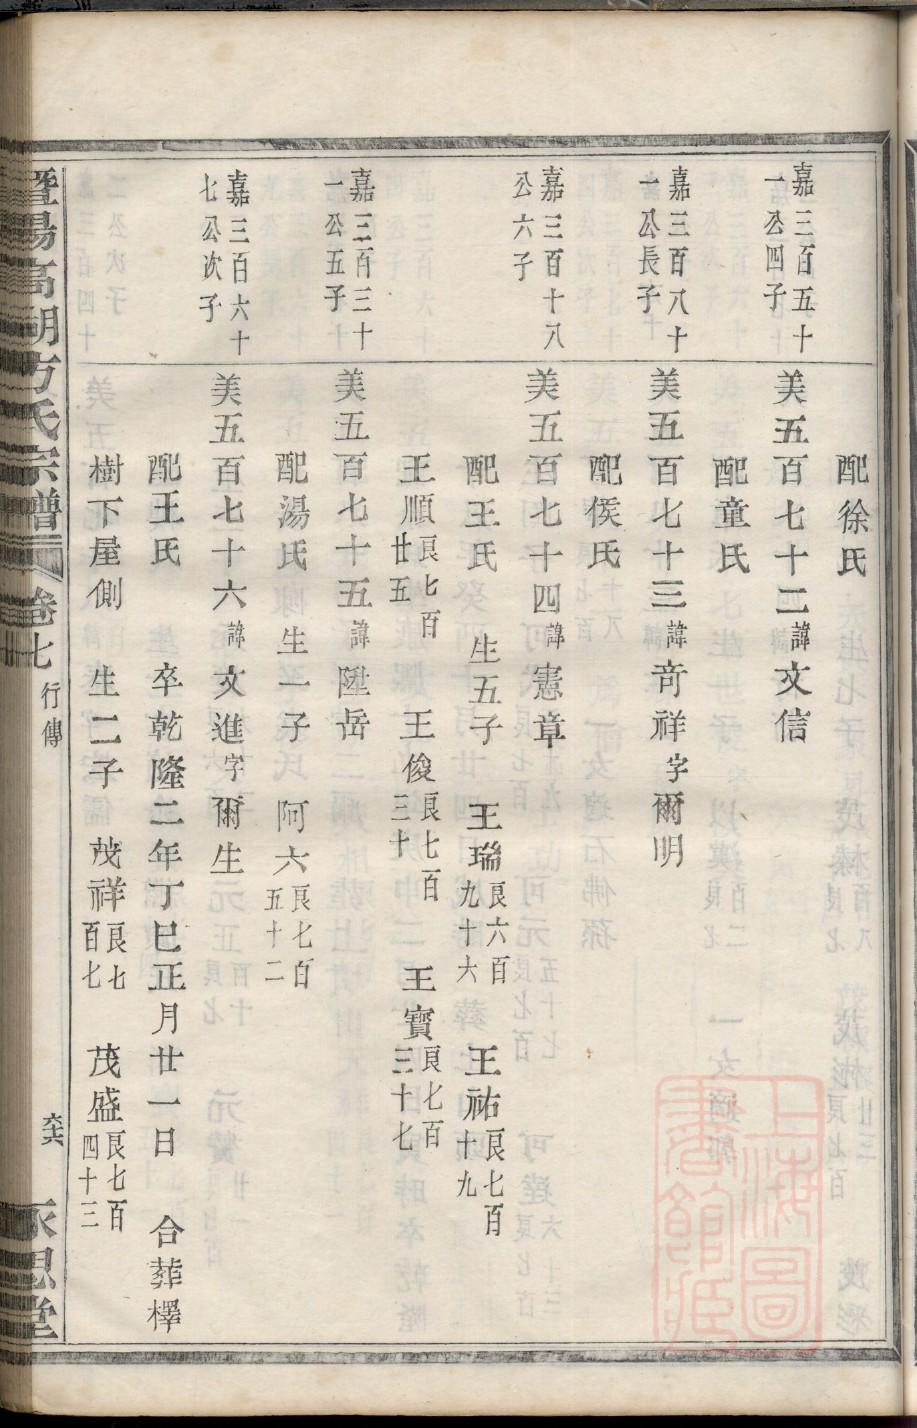 配徐氏
嘉三百五十一公四子
美五百七十二諱文信
配童氏
嘉三百八十一公長子
美五百七十三諱奇祥字爾明
配侯氏
嘉三百十八公六子
美五百七十四諱憲章
配王氏 生五子 王瑞艮六百九十六 王祐艮七百十九
王順艮七百廿五 王俊艮七百三十 王寶艮七百三十七
嘉三百三十一公五子
美五百七十五諱陞岳
配湯氏 生一子 阿六艮七百五十二
嘉三百六十七公次子
美五百七十六諱文進字爾生
配王氏 卒乾隆二年丁巳正月廿一日 合葬檡
樹下屋側 生二子 茂祥艮七百七 茂盛艮七百四十三
暨陽高湖方氏宗譜 卷七 行傳 永思堂
上海圖書館藏